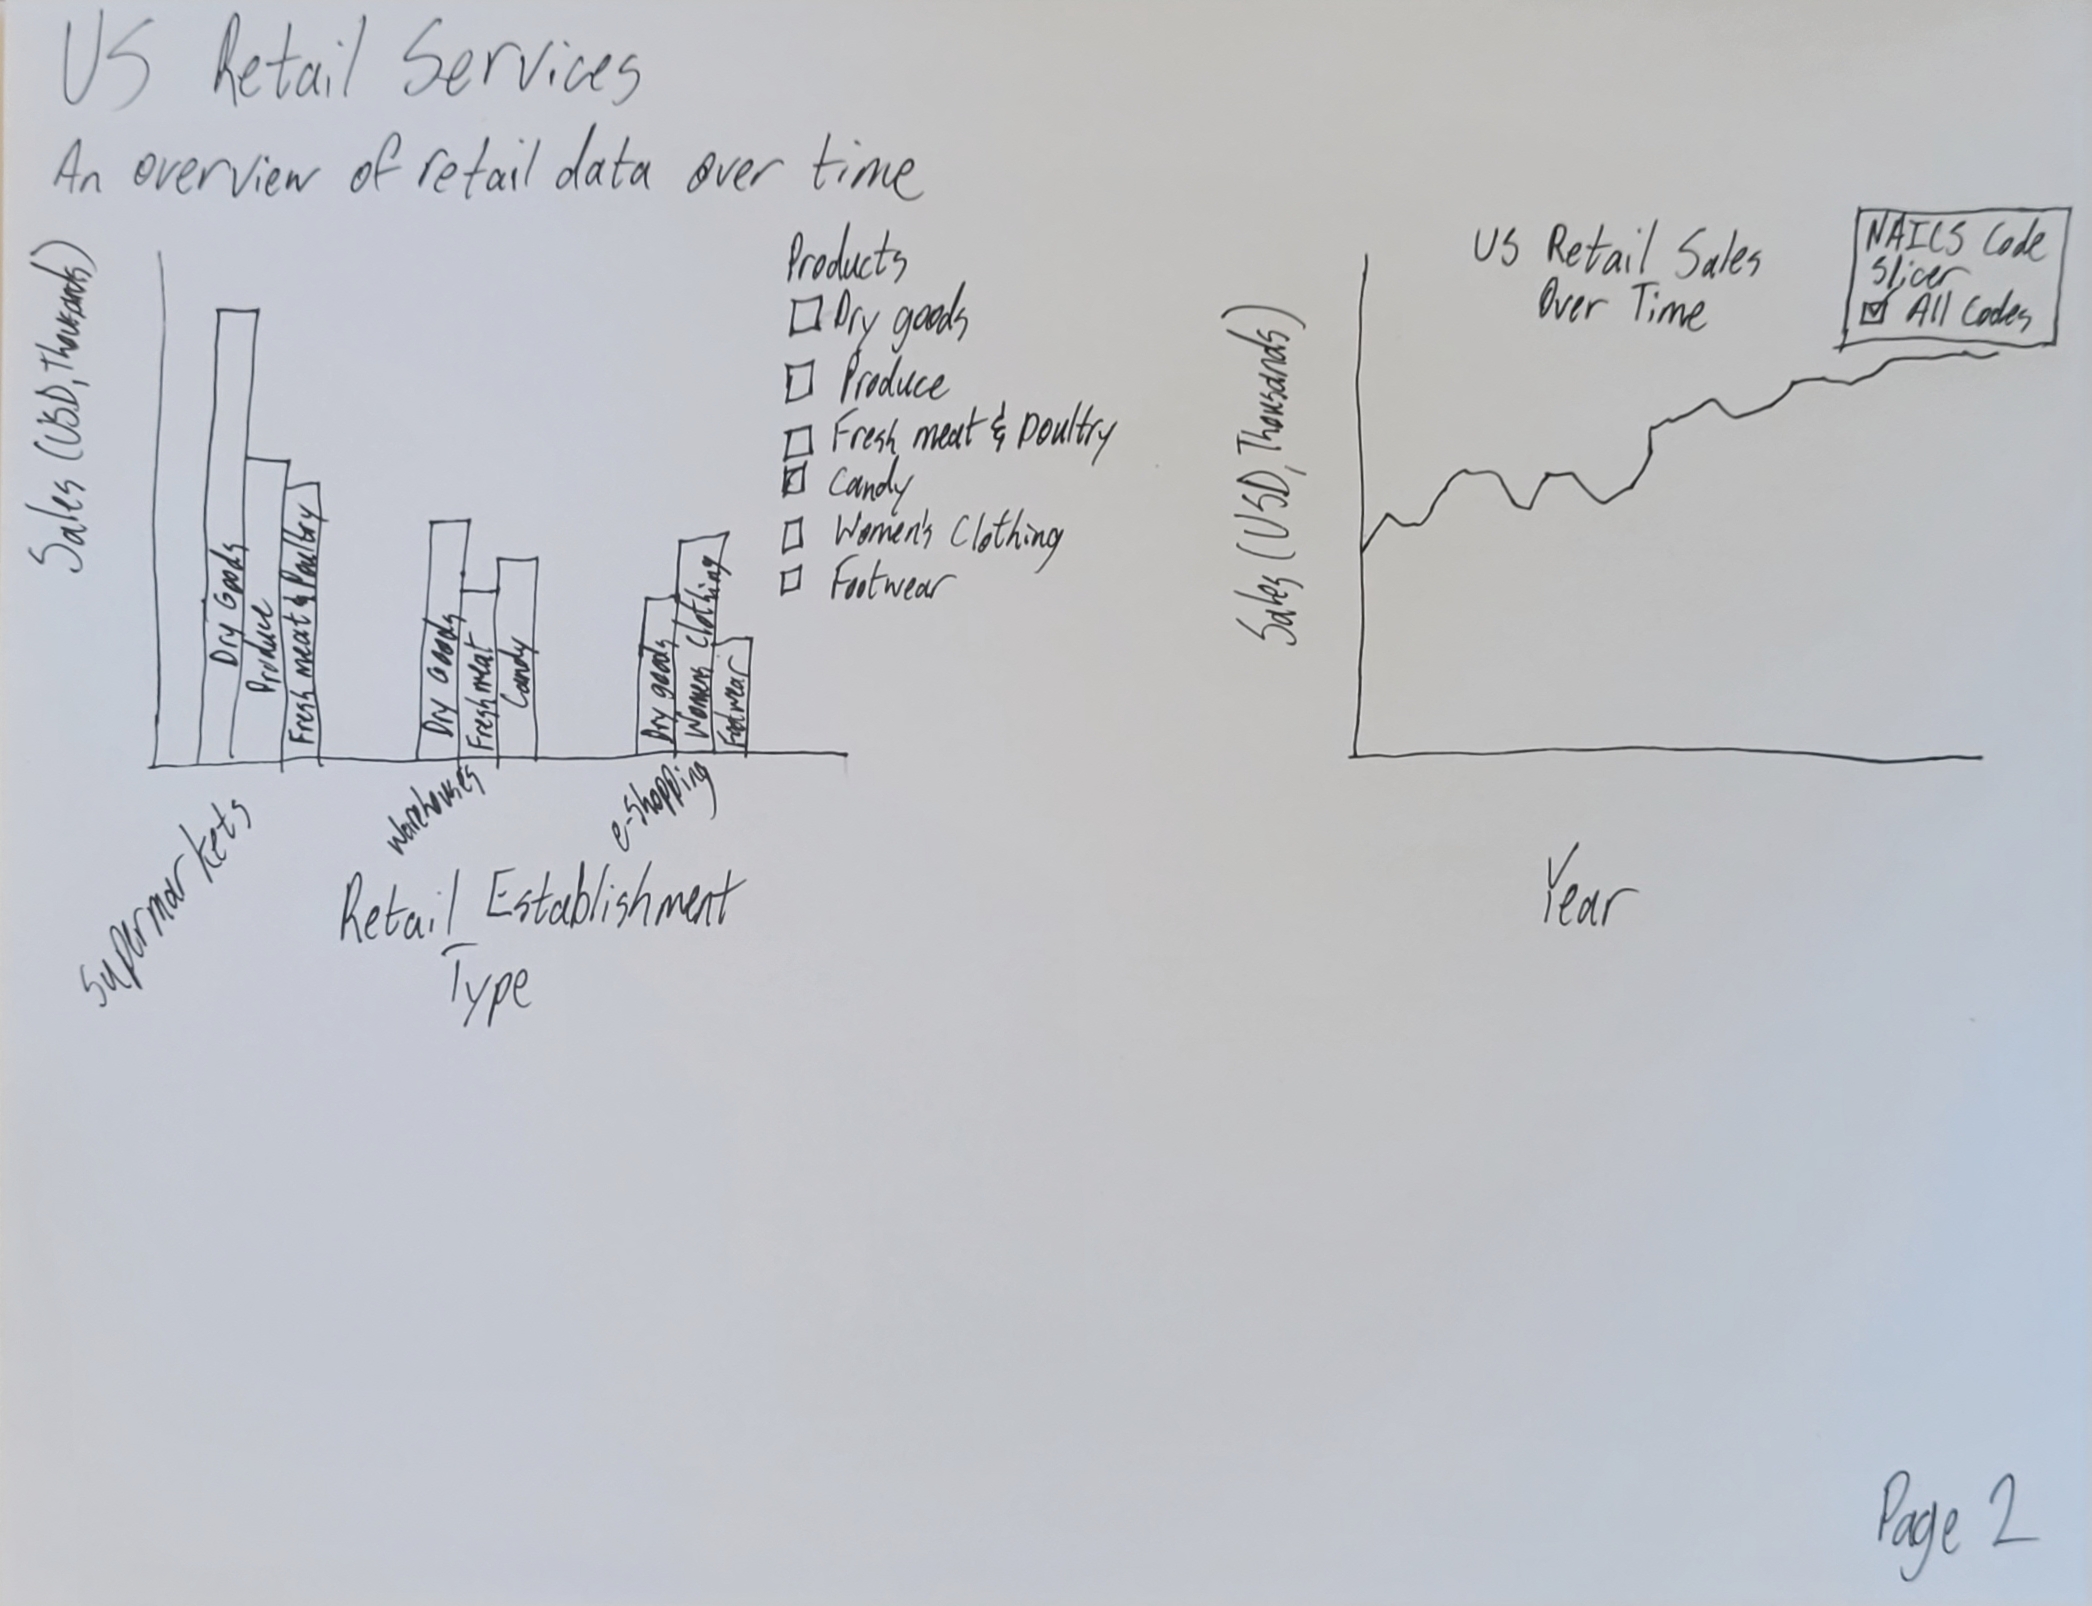 US Retail Services
An overview of retail data over time
Sales (USD, Thousands)
Dry Goods
Produce
Fresh meat & Poultry
Dry Goods
Fresh meat
Candy
Dry goods
Womens Clothing
Footwear
Supermarkets
Warehouses
e-shopping
Retail Establishment
Type
Products
Dry goods
Produce
Fresh meat & poultry
Candy
Women's Clothing
Footwear
US Retail Sales
Over Time
NAICS Code
Slicer
All Codes
Sales (USD, Thousands)
Year
Page 2